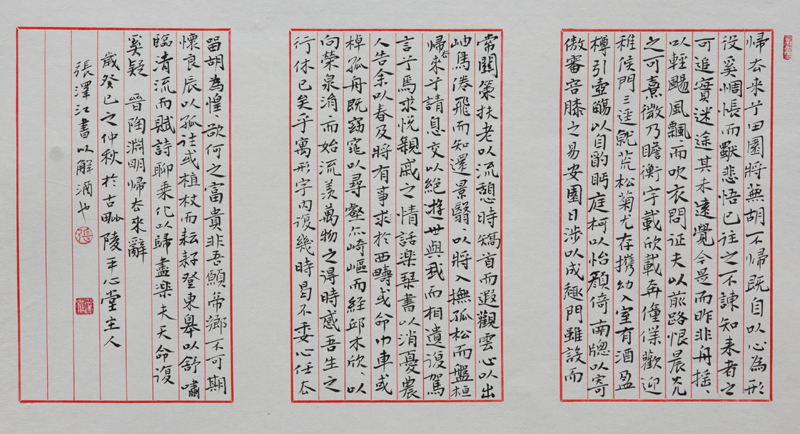 歸去來兮田園將蕪胡不歸既自以心為形
役奚惆悵而獸悲悟已往之不諫知来者之
可追實迷途其未遠覺今是而昨非舟搖、
以輕颺風飄而吹衣問征夫以前路恨晨光
之可熹微乃瞻衡宇載欣載奔僮僕歡迎
稚候門三逕就荒松菊尤存攜幼入室有酒盈
樽引壺觴以自酌眄庭柯以怡顏倚南牕以寄
傲審容膝之易安園日涉以成趣門雖設而
常關策扶老以流憩時矯首而遐觀雲心以出
岫鳥倦飛而知還景翳、以將入撫孤松而盤桓
歸来兮請息交以絕遊世與我而相遺復駕
言兮焉求悅親戚之情話樂琴書以消憂農
人告余以春及將有事於西疇或命巾車或
棹孤舟既窈窕以尋壑亦崎嶇而經邱木欣、以
向榮泉涓、而始流羨萬物之得時感吾生之
行休已矣乎寓形宇內復幾時曷不委心任去
留胡為惶、欲何之富貴非吾願帝鄉不可期
懷良辰以孤往或植杖而耘耔登東皋以舒嘯
臨清流而賦詩聊乘化以歸盡樂夫天命復
奚疑 晉陶淵明歸去來辭
歲癸巳之仲秋於古毗陵平心堂主人
張澤江書以解酒也